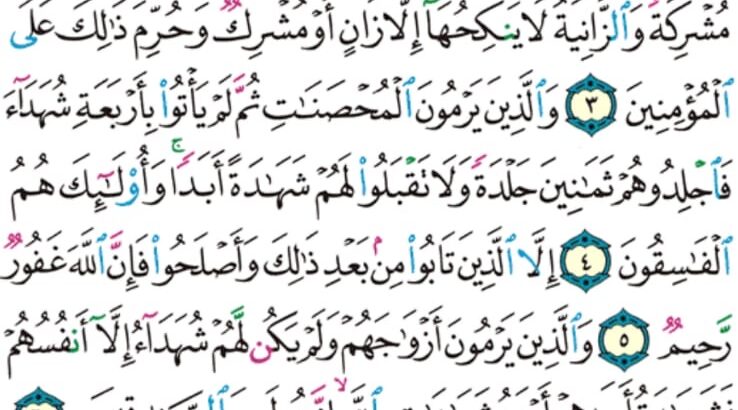 مُشْرِكَةً وَٱلزَّانِيَةُ لَا يَنكِحُهَآ إِلَّا زَانٍ أَوْ مُشْرِكٌ وَحُرِّمَ ذَٰلِكَ عَلَى
ٱلْمُؤْمِنِينَ ٣ وَٱلَّذِينَ يَرْمُونَ ٱلْمُحْصَنَٰتِ ثُمَّ لَمْ يَأْتُوا۟ بِأَرْبَعَةِ شُهَدَآءَ
فَٱجْلِدُوهُمْ ثَمَٰنِينَ جَلْدَةً وَلَا تَقْبَلُوا۟ لَهُمْ شَهَٰدَةً أَبَدًا ۚ وَأُو۟لَٰٓئِكَ هُمُ
ٱلْفَٰسِقُونَ ٤ إِلَّا ٱلَّذِينَ تَابُوا۟ مِنۢ بَعْدِ ذَٰلِكَ وَأَصْلَحُوا۟ فَإِنَّ ٱللَّهَ غَفُورٌ
رَّحِيمٌ ٥ وَٱلَّذِينَ يَرْمُونَ أَزْوَٰجَهُمْ وَلَمْ يَكُن لَّهُمْ شُهَدَآءُ إِلَّآ أَنفُسُهُمْ